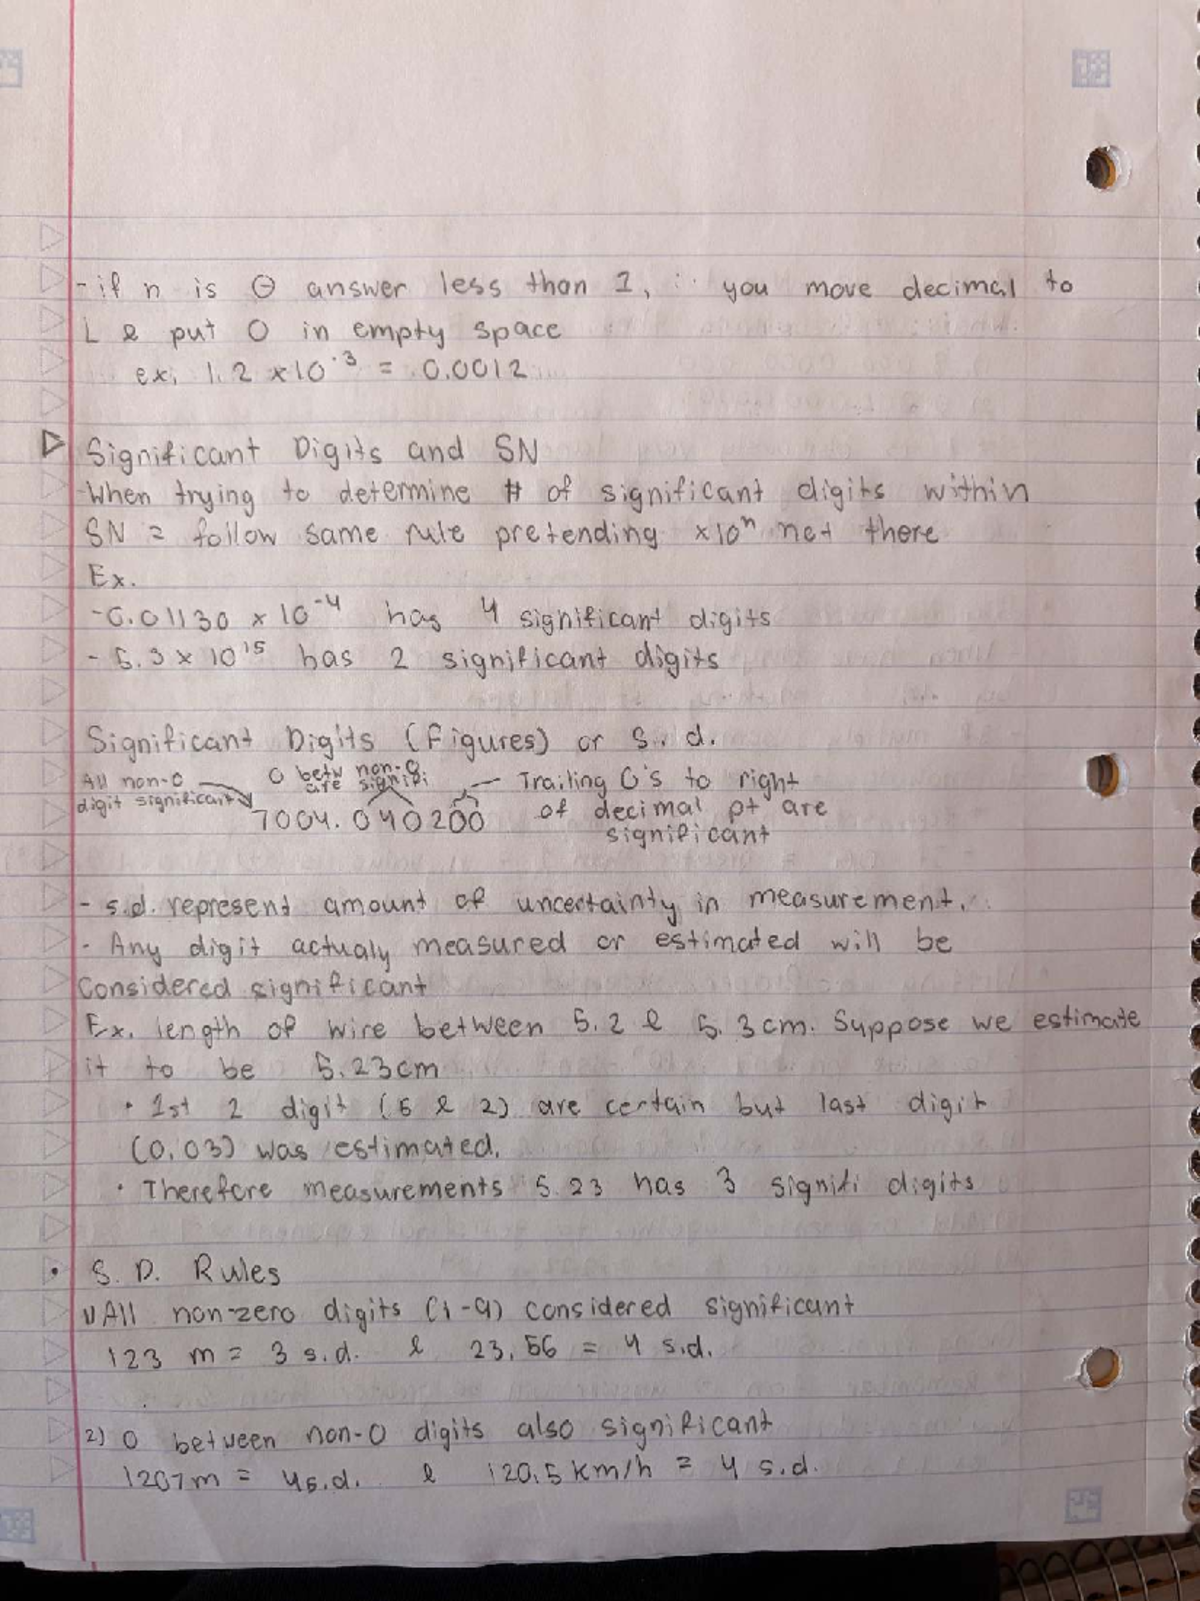 - if n is ⊖ answer less than 1, ∴ you move decimal to
L & put 0 in empty space
ex. 1.2 x10⁻³ = 0.0012
Significant Digits and SN
- When trying to determine # of significant digits within
SN = follow same rule pretending x10ⁿ not there
Ex.
- 0.01130 x 10⁻⁴ has 4 significant digits
- 5.3 x 10¹⁵ has 2 significant digits
Significant Digits (Figures) or s.d.
All non-0
digit significant
0 betw non-0
are signifi
Trailing 0's to right
of decimal pt are
significant
7004.040200
- s.d. represent amount of uncertainty in measurement.
- Any digit actualy measured or estimated will be
Considered significant
Ex. length of wire between 5.2 & 5.3cm. Suppose we estimate
it to be 5.23cm
• 1st 2 digit (5 & 2) are certain but last digit
(0.03) was estimated.
• Therefore measurements 5.23 has 3 signifi digits
• S.D. Rules
1) All non-zero digits (1-9) considered significant
123 m = 3 s.d. & 23.56 = 4 s.d.
2) 0 between non-0 digits also significant
1207m = 4s.d. & 120.5 km/h = 4 s.d.